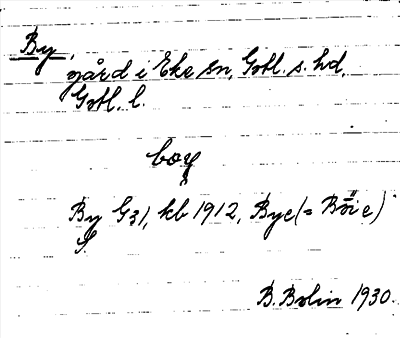 By,
gård i Eke sn, Gotl. s. hd,
Gotl. l.
boy
By G31, kb 1912, Bye (= Böie)
S.
B. Bolin 1930.